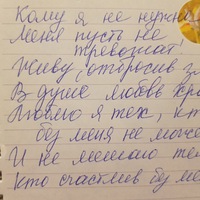 Кому я не нужна
Меня пусть не
тревожат!
Живу, отбросив з
В душе любовь хра
Люблю я тех, кт
без меня не може
И не мешаю тем
Кто счастлив без ме